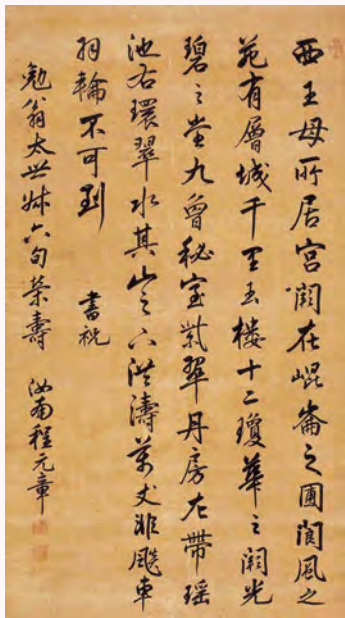 西王母所居宮闕在崐崙之圃閬風之
苑有層城千里玉樓十二瓊華之闕光
碧之堂九曾秘室紫翠丹房左帶瑤
池右環翠水其山之下洪濤萬丈非飈車
羽輪不可到 書祝
勉翁太世叔六旬榮壽 汝南程元章